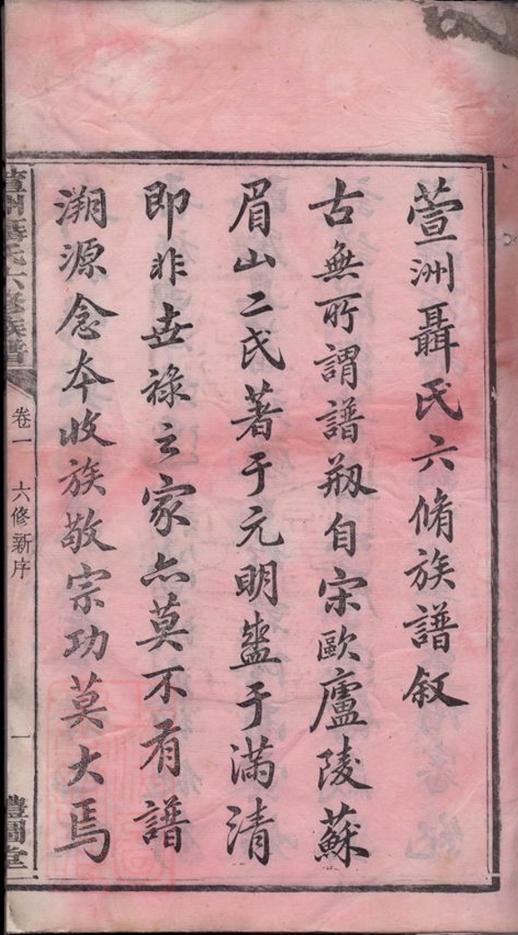 萱洲聶氏六脩族譜叙
古無所謂譜剏自宋歐廬陵蘇
眉山二氏著于元明盛于滿清
即非世祿之家亦莫不有譜
溯源念本收族敬宗功莫大焉
萱洲聶氏六修族譜
卷一
六修新序
一